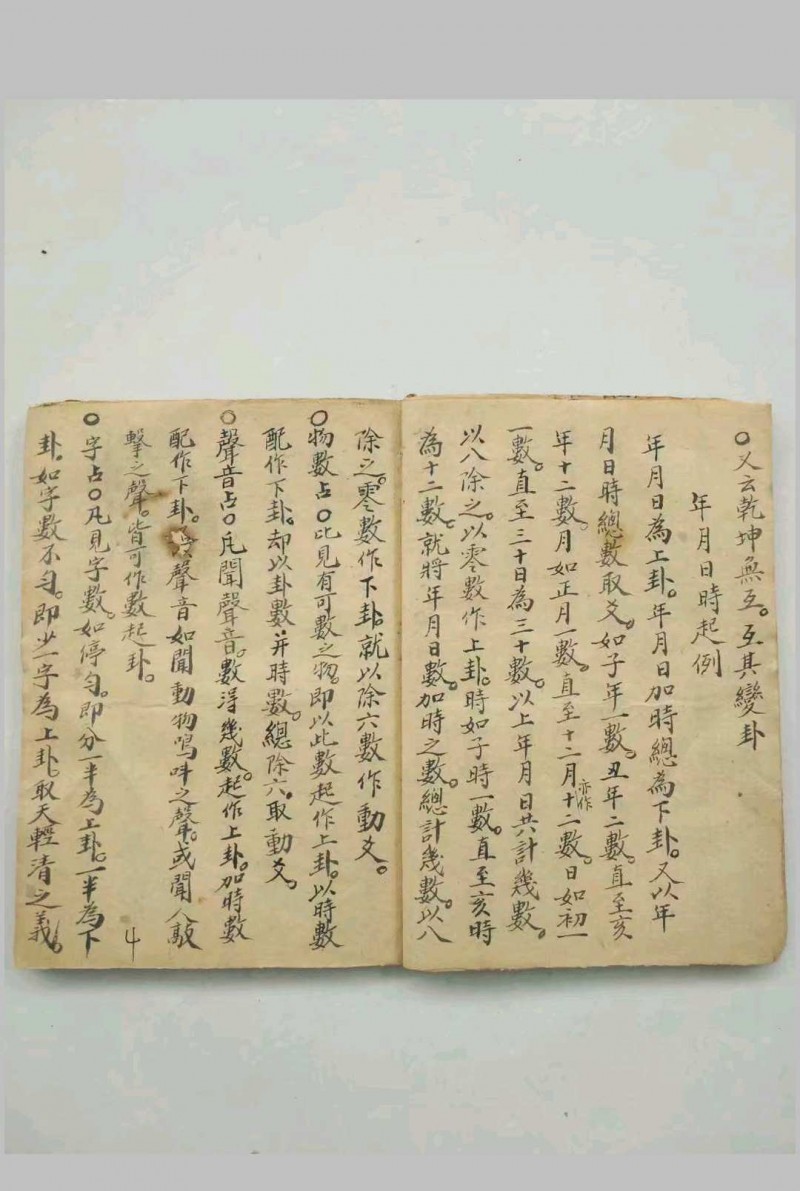 ○又云乾坤無互。互其變卦
年月日時起例
年月日為上卦。年月日加時總為下卦。又以年
月日時總數取爻。如子年一數。丑年二數。直至亥
年十二數。月如正月一數。直至十二月亦作十二數。日如初一
一數。直至三十日為三十數。以上年月日共計幾數。
以八除之。以零數作上卦。時如子時一數。直至亥時
為十二數。就將年月日數。加時之數。總計幾數。以八
除之。零數作下卦。就以除六數作動爻。
○物數占○此見有可數之物。即以此數起作上卦。以時數
配作下卦。却以卦數并時數。總除六。取動爻。
○聲音占○凡聞聲音。數得幾數。起作上卦。加時數
配作下卦。聲音如聞動物鳴叫之聲。或聞人敲
擊之聲。皆可作數起卦。
4
○字占○凡見字數。如停勻。即分一半為上卦。一半為下
卦。如字數不勻。即少一字為上卦。取天輕清之義。